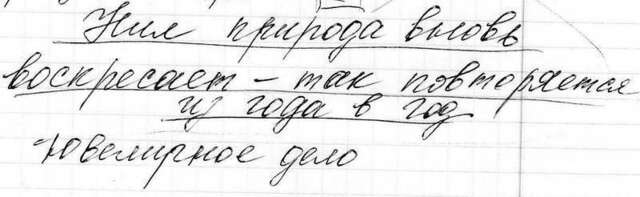 Нил природа вновь
воскресает – так повторяется
из года в год
Ювелирное дело